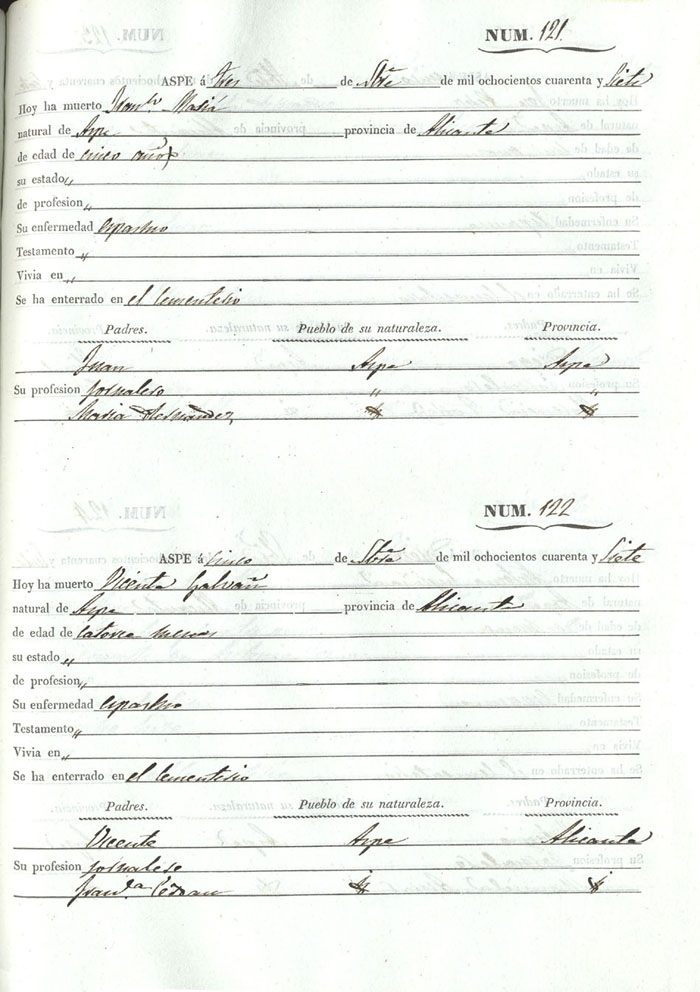 NUM. 121.
ASPE á tres de Sbre de mil ochocientos cuarenta y Siete
Hoy ha muerto Franco Masiá
natural de Aspe provincia de Alicante
de edad de cinco años
su estado „
de profesion „
Su enfermedad espasmo
Testamento „
Vivia en „
Se ha enterrado en el Cementerio
Padres. Pueblo de su naturaleza. Provincia.
Juan Aspe Aspe
Su profesion jornalero „ „
Maria Hernandez
NUM. 122
ASPE á Cinco de Sbre de mil ochocientos cuarenta y Siete
Hoy ha muerto Vicenta Galvañ
natural de Aspe provincia de Alicante
de edad de Catorce meses
su estado „
de profesion „
Su enfermedad espasmo
Testamento „
Vivia en „
Se ha enterrado en el Cementerio
Padres. Pueblo de su naturaleza. Provincia.
Vicente Aspe Alicante
Su profesion jornalero
Franca